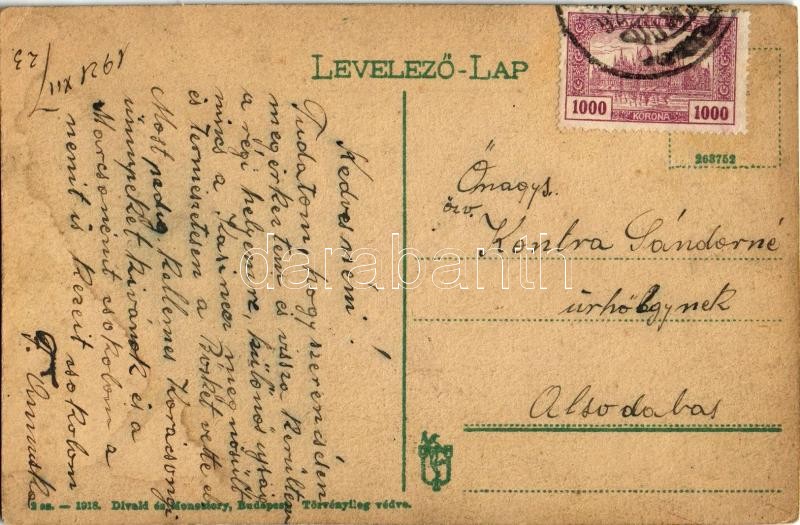 LEVELEZŐ-LAP
1000 1000
KORONA
263752
1921 XII/23
Kedves néni!
Tudatom, hogy szerencsésen
megérkeztem és vissza kerültem
a régi helyemre, különös újság
nincs a Kazincz megnősült
és természetesen a Böskét vette el
Most pedig kellemes Karácsonyi
ünnepeket kivánok és a
Marcsa nénit csokolom a
nénit is kezeit csokolom
T. Annuska
Őnagys.
özv. Kontra Sándorné
úrhölgynek
Alsodabas
darabanth
2 sz. — 1918. Divald és Monostory, Budapest. Törvényileg védve.